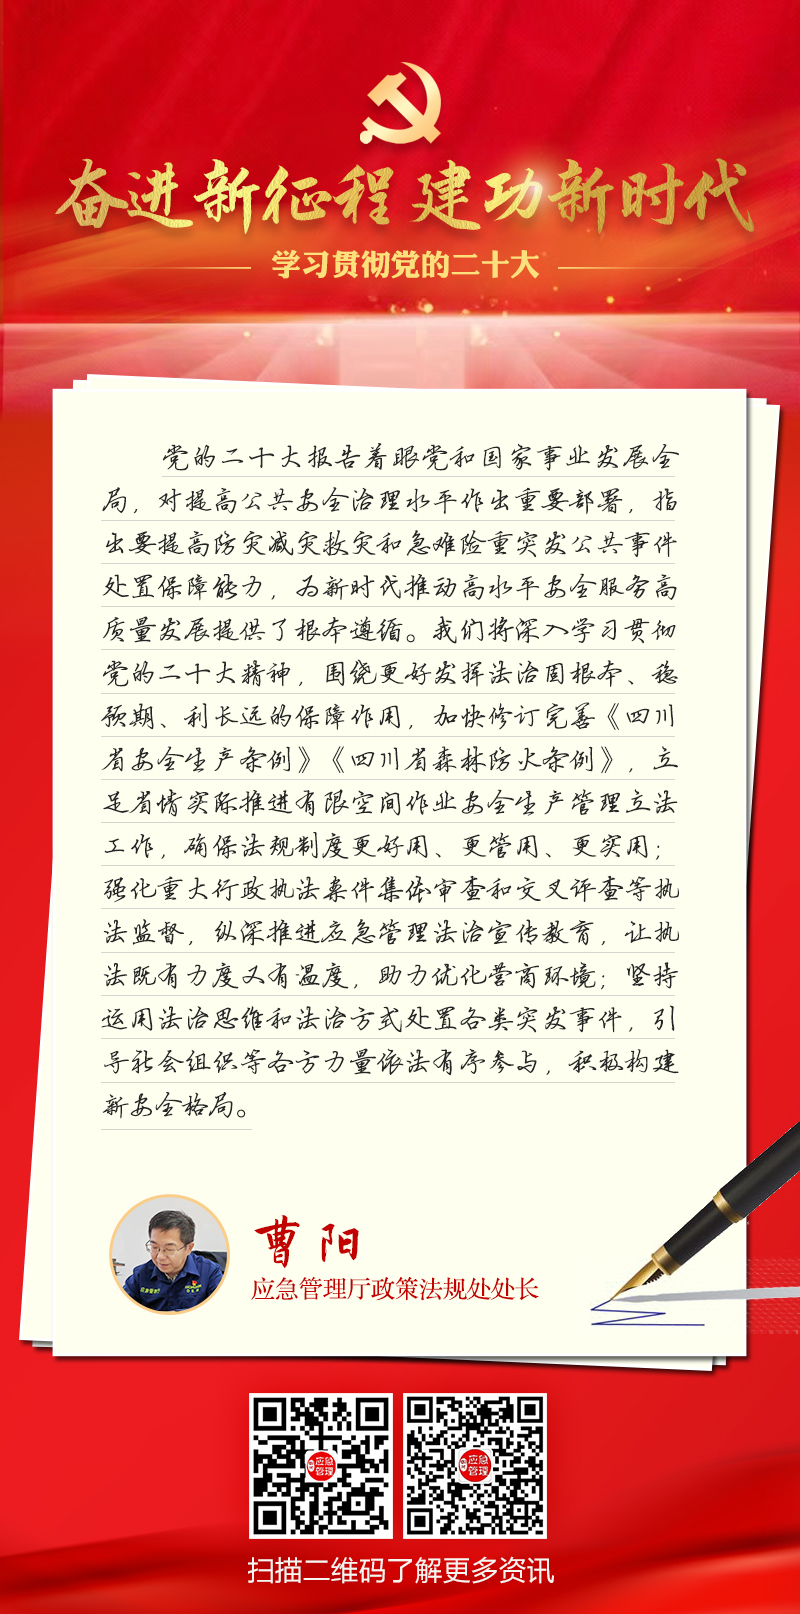 奋进新征程 建功新时代
学习贯彻党的二十大
党的二十大报告着眼党和国家事业发展全
局，对提高公共安全治理水平作出重要部署，指
出要提高防灾减灾救灾和急难险重突发公共事件
处置保障能力，为新时代推动高水平安全服务高
质量发展提供了根本遵循。我们将深入学习贯彻
党的二十大精神，围绕更好发挥法治固根本、稳
预期、利长远的保障作用，加快修订完善《四川
省安全生产条例》《四川省森林防火条例》，立
足省情实际推进有限空间作业安全生产管理立法
工作，确保法规制度更好用、更管用、更实用；
强化重大行政执法案件集体审查和交叉评查等执
法监督，纵深推进应急管理法治宣传教育，让执
法既有力度又有温度，助力优化营商环境；坚持
运用法治思维和法治方式处置各类突发事件，引
导社会组织等各方力量依法有序参与，积极构建
新安全格局。
曹阳
应急管理厅政策法规处处长
应急
管理
应急
管理
扫描二维码了解更多资讯